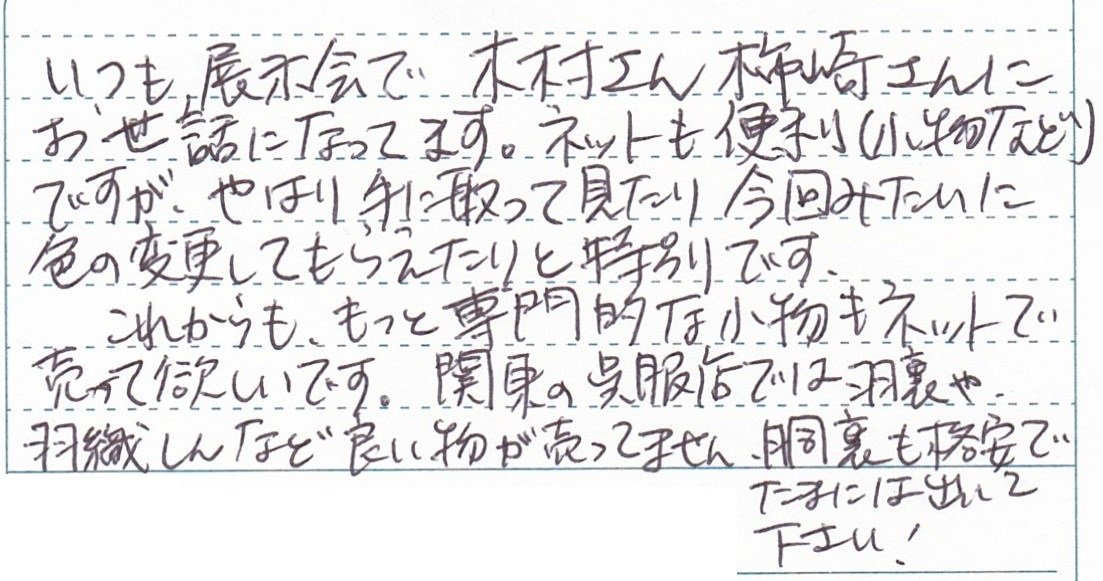 いつも、展示会で 木村さん 柿崎さんに
お世話になってます。ネットも便利(小物など)
ですが、やはり手に取って見たり 今回みたいに
色の変更してもらえたりと特別です。
これからも、もっと専門的な小物もネットで
売って欲しいです。関東の呉服店では羽裏や、
羽織しんなど良い物が売ってません、胴裏も格安で
たまには出して
下さい!